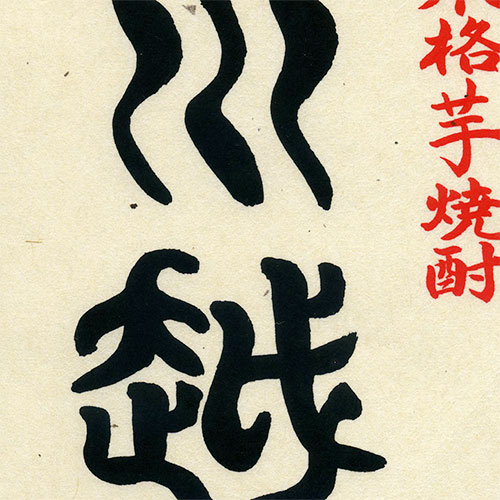 本格芋焼酎
川越